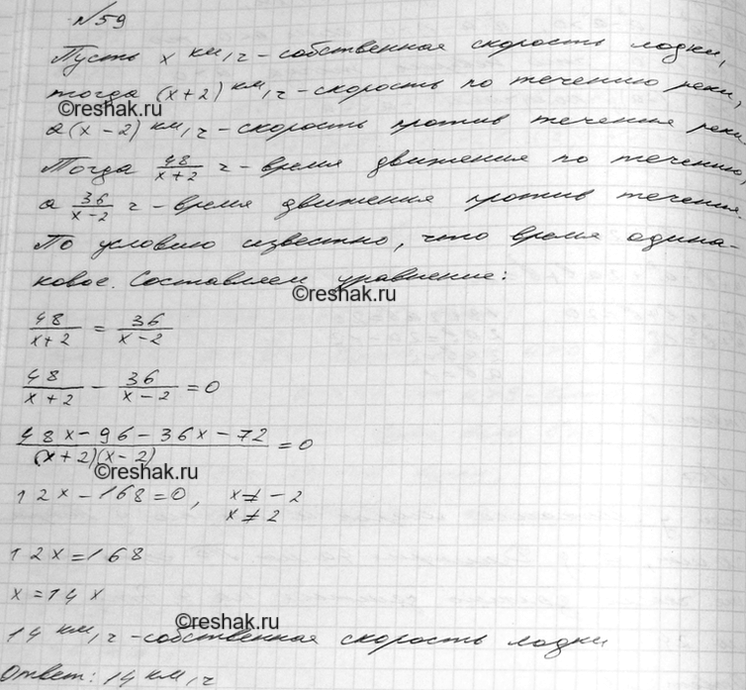 №59
Пусть x км/ч - собственная скорость лодки,
тогда (x+2) км/ч - скорость по течению реки,
©reshak.ru
а (x-2) км/ч - скорость против течения реки.
Тогда 48/(x+2) ч - время движения по течению,
а 36/(x-2) ч - время движения против течения.
По условию известно, что время одина-
ковое. Составляем уравнение:
©reshak.ru
48/(x+2) = 36/(x-2)
48/(x+2) - 36/(x-2) = 0
(48x-96-36x-72)/((x+2)(x-2)) = 0
©reshak.ru
12x-168=0, x≠-2
x≠2
12x=168
x=14 x
©reshak.ru
14 км/ч - собственная скорость лодки
Ответ: 14 км/ч